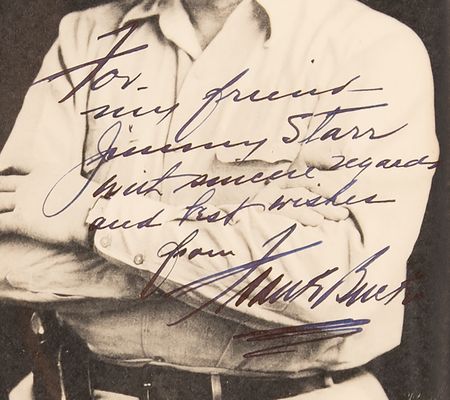 For
my friend
Jimmy Starr
with sincere regards
and best wishes
from Frank Buck